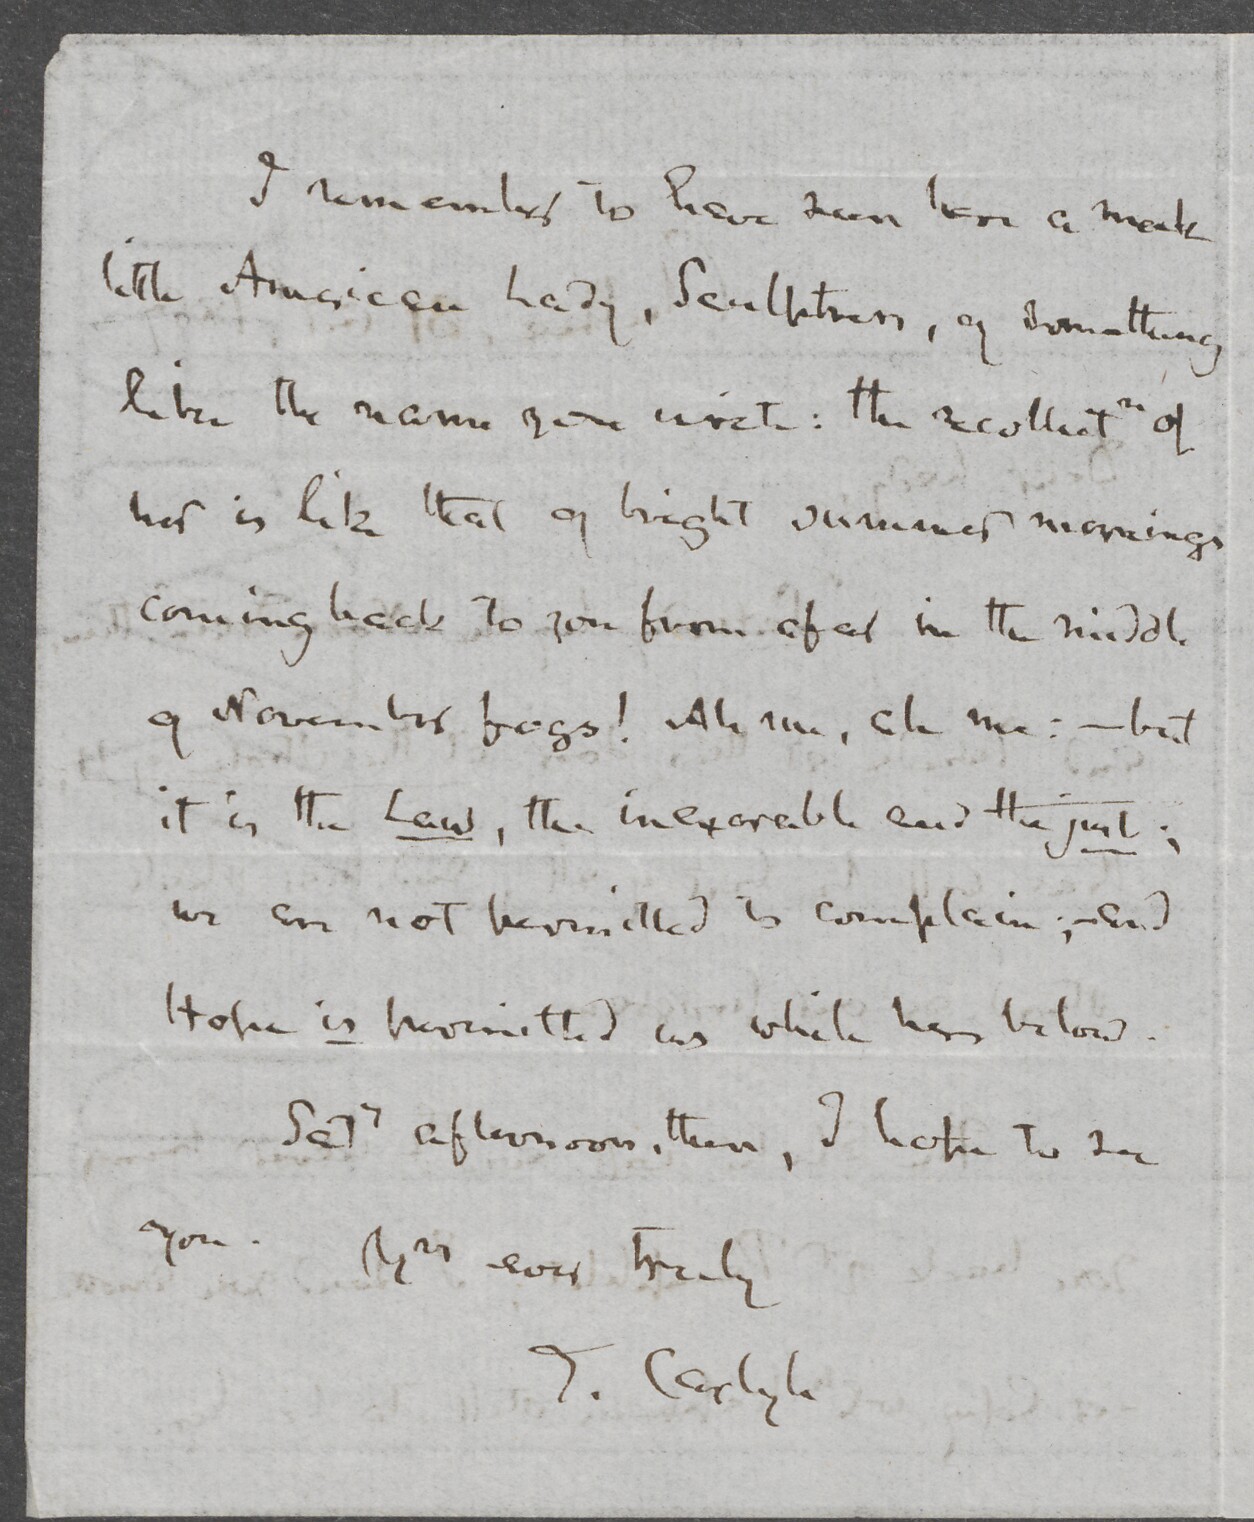 I remember to have seen here a meek
little American Lady, Sculptress, of something
like the name you write: the recollectn of
her is like that of bright summer mornings
coming back to you from afar in the middle
of November fogs! Ah me, ah me: — but
it is the Law, the inexorable and the just;
we are not permitted to complain; — and
Hope is permitted us while here below.
Saty afternoon, then, I hope to see
you. Yrs ever truly
T. Carlyle